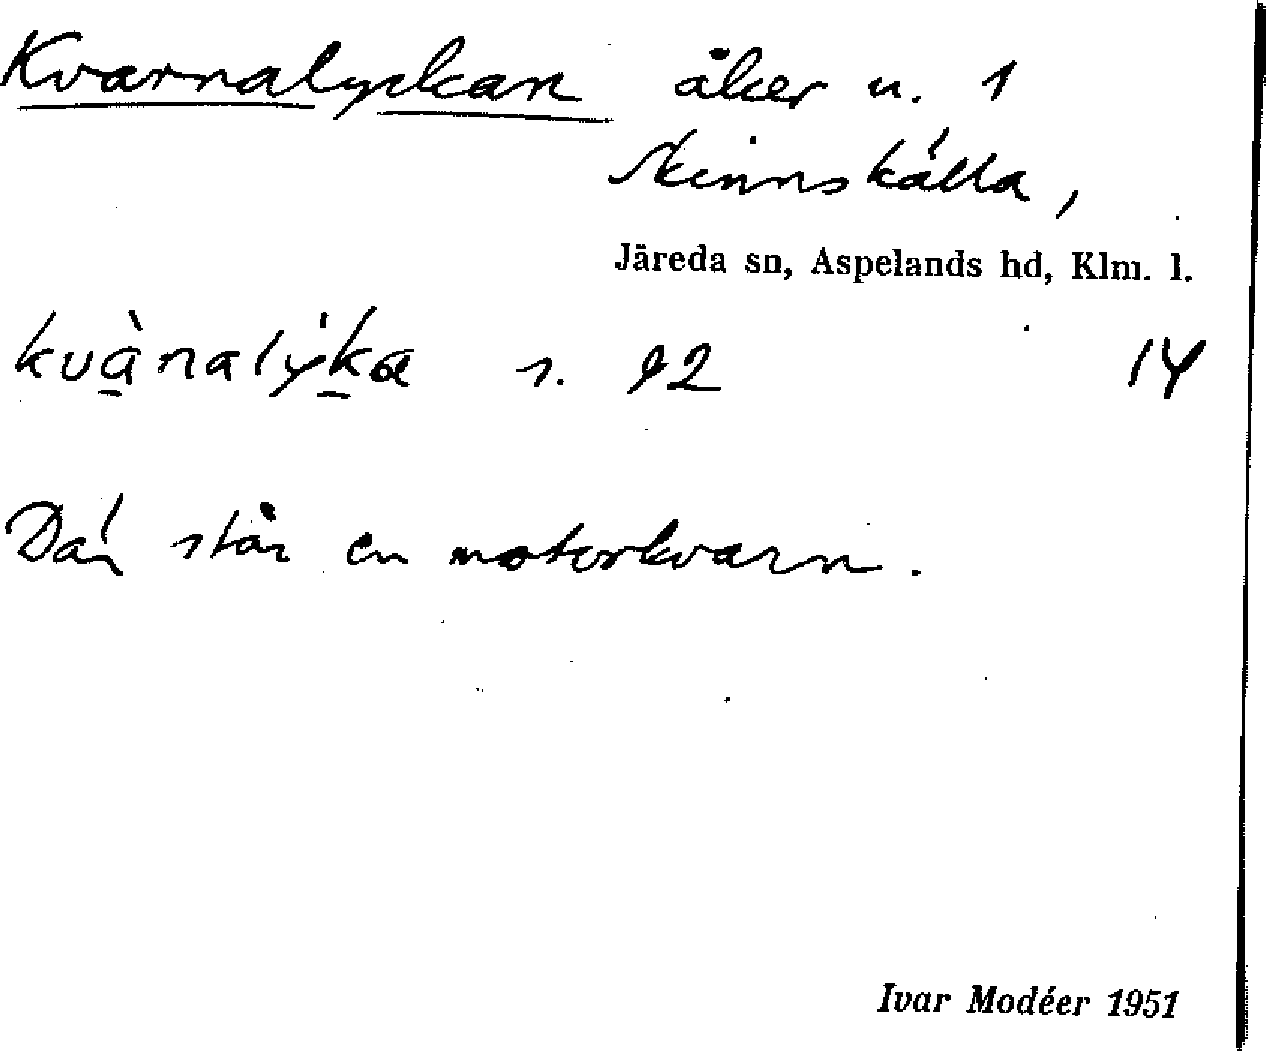 Kvarnalyckan åker u. 1
Skinnskälla,
Järeda sn, Aspelands hd, Klm. l.
kvànalýka s. 92 14
Där står en motorkvarn.
Ivar Modéer 1951